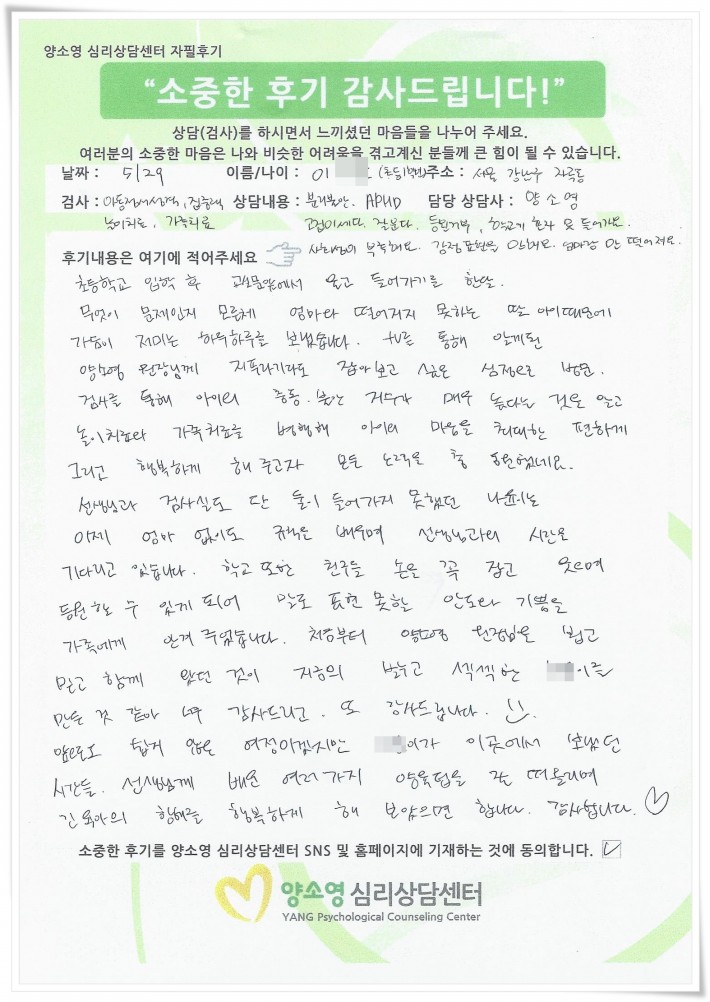 양소영 심리상담센터 자필후기
“소중한 후기 감사드립니다!”
상담(검사)를 하시면서 느끼셨던 마음들을 나누어 주세요.
여러분의 소중한 마음은 나와 비슷한 어려움을 겪고계신 분들께 큰 힘이 될 수 있습니다.
날짜 : 5/29 이름/나이 : 이 주소 : 서울 강남구 자곡동
검사 : 아동정서성격, 집중력 상담내용 : 분리불안, ADHD 담당 상담사 : 양소영
놀이치료, 가족치료 고집이세다. 잘운다. 등원거부, 학교에 혼자 못 들어가요.
사회성이 부족해요. 감정표현을 안해요. 엄마랑 안 떨어져요.
후기내용은 여기에 적어주세요
초등학교 입학 후 교문앞에서 울고 들어가기를 한달.
무엇이 문제인지 모른체 엄마와 떨어지지 못하는 딸 아이때문에
가슴이 저미는 하루하루를 보냈습니다. tv를 통해 알게된
양소영 원장님께 지푸라기라도 잡아보고 싶은 심정으로 방문.
검사를 통해 아이의 충동.불안 지수가 매우 높다는 것을 알고
놀이치료와 가족치료를 병행해 아이의 마음을 최대한 편하게
그리고 행복하게 해 주고자 모든 노력을 총 동원했네요.
선생님과 검사실도 단 둘이 들어가지 못했던 나윤이는
이제 엄마 없이도 규칙을 배우며 선생님과의 시간을
기다리고 있습니다. 학교 또한 친구들 손을 꼭 잡고 웃으며
등원할 수 있게 되어 말로 표현 못할 안도와 기쁨을
가족에게 안겨 주었습니다. 처음부터 양소영 원장님을 뵙고
믿고 함께 왔던 것이 지금의 밝고 씩씩한 이를
만든 것 같아 너무 감사드리고. 또 감사드립니다.
앞으로도 쉽지 않은 여정이겠지만 이가 이곳에서 보냈던
시간들. 선생님께 배운 여러가지 양육법을 잘 떠올리며
긴 육아의 항해를 행복하게 해 보았으면 합니다. 감사합니다.
소중한 후기를 양소영 심리상담센터 SNS 및 홈페이지에 기재하는 것에 동의합니다.
양소영 심리상담센터
YANG Psychological Counseling Center